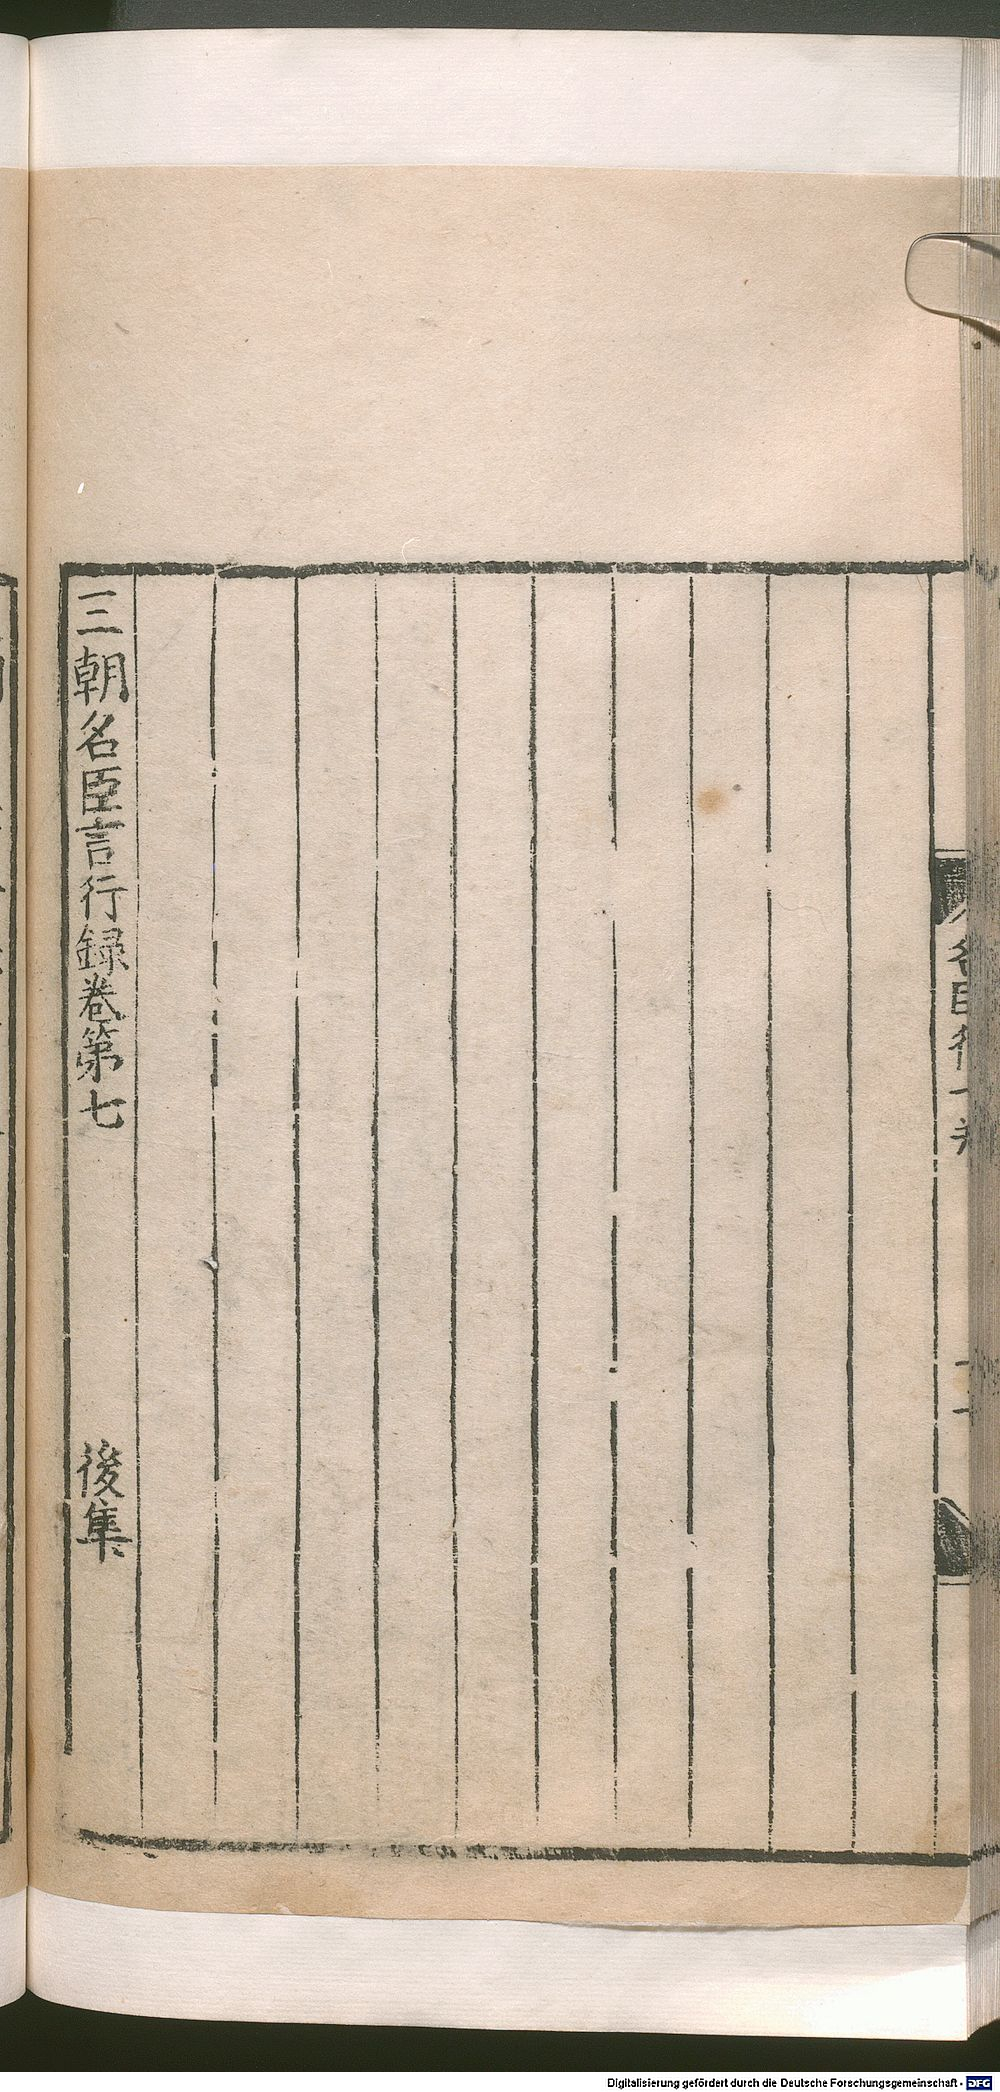 名臣後七卷
三朝名臣言行録卷第七 後集
Digitalisierung gefördert durch die Deutsche Forschungsgemeinschaft - DFG